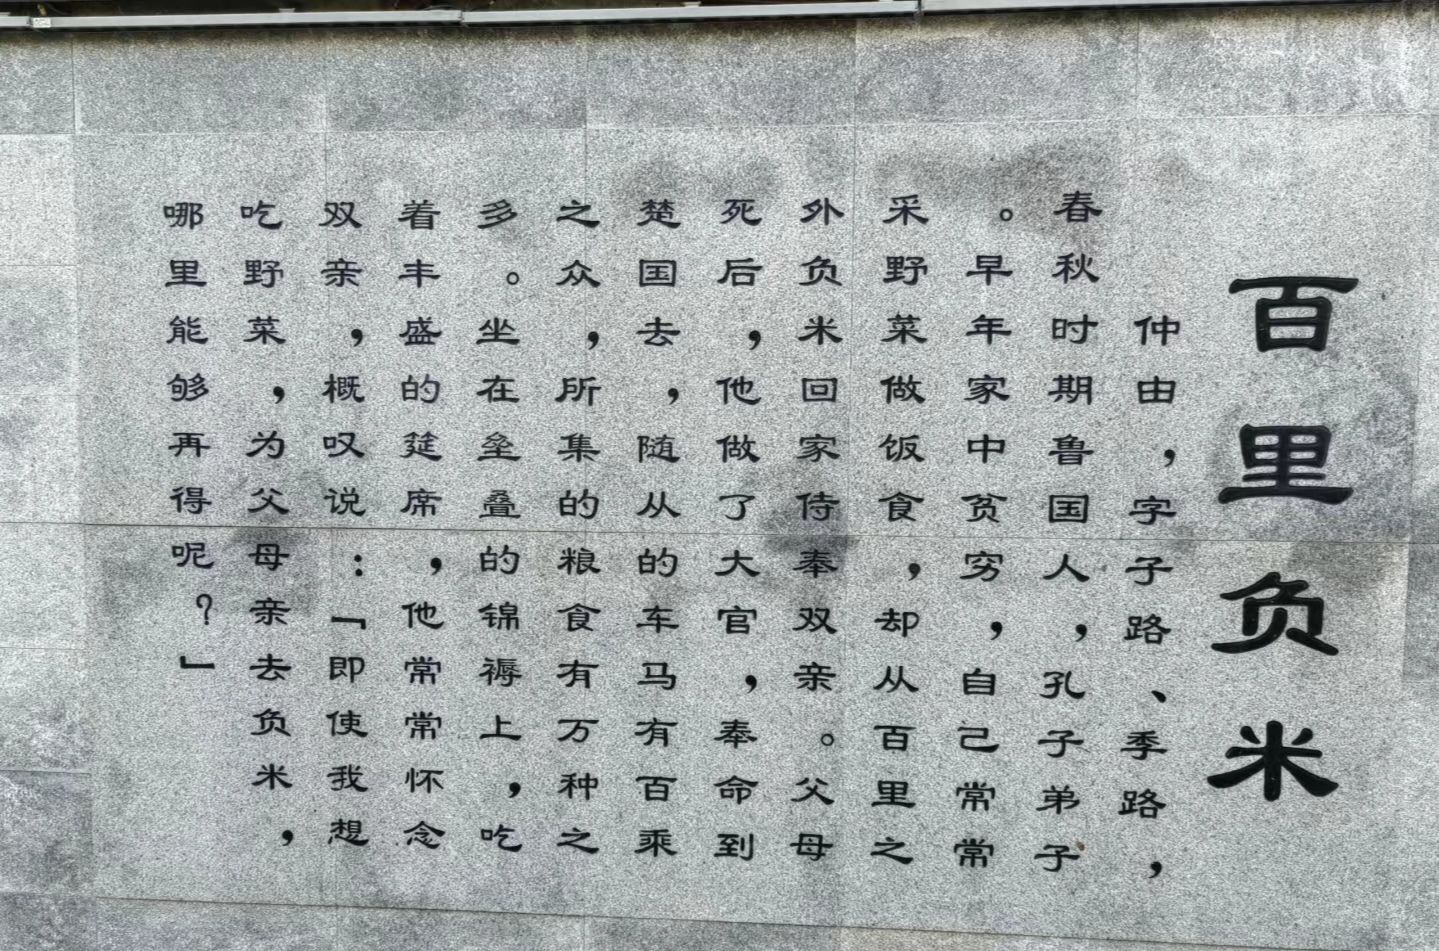 百里负米
仲由，字子路、季路，
春秋时期鲁国人，孔子弟子
。早年家中贫穷，自己常常
采野菜做饭食，却从百里之
外负米回家侍奉双亲。父母
死后，他做了大官，奉命到
楚国去，随从的车马有百乘
之众，所集的粮食有万种之
多。坐在垒叠的锦褥上，吃
着丰盛的筵席，他常常怀念
双亲，概叹说：「即使我想
吃野菜，为父母亲去负米，
哪里能够再得呢？」